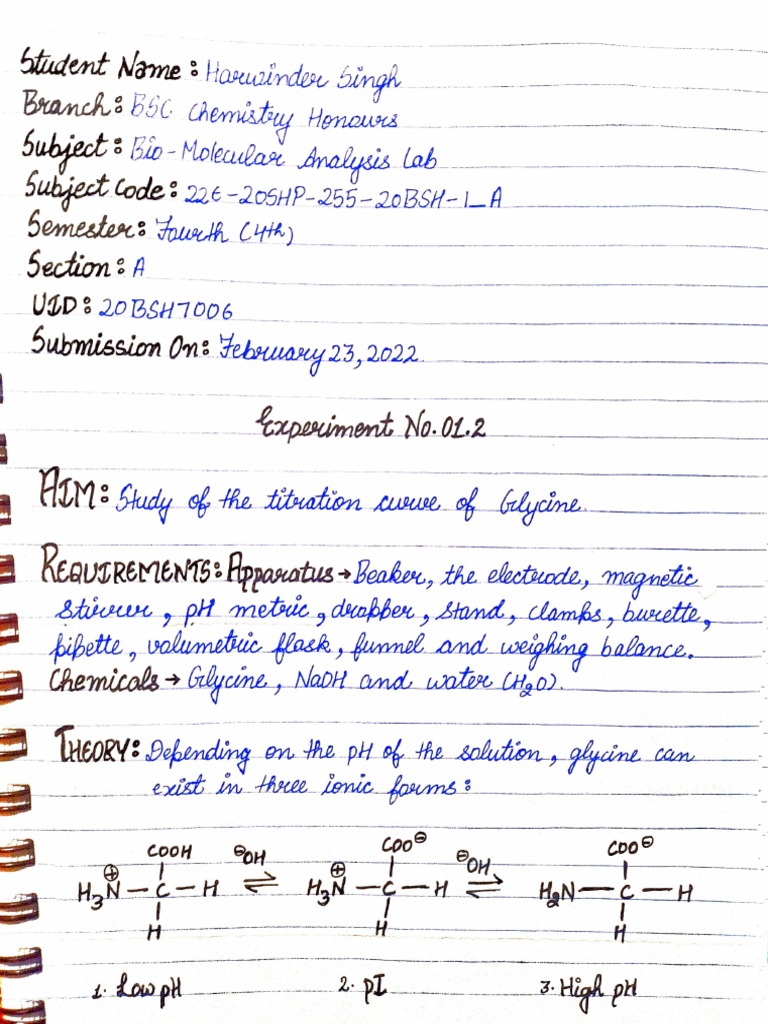 Student Name: Harwinder Singh
Branch: BSC Chemistry Honours
Subject: Bio-Molecular Analysis Lab
Subject Code: 22E-20SHP-255-20BSH-1_A
Semester: Fourth (4th)
Section: A
UID: 20BSH7006
Submission On: February 23, 2022.
Experiment No. 01.2
AIM: Study of the titration curve of Glycine.
REQUIREMENTS: Apparatus → Beaker, the electrode, magnetic
stirrer, pH metric, dropper, stand, clamps, burette,
pipette, volumetric flask, funnel and weighing balance.
Chemicals → Glycine, NaOH and water (H₂O).
THEORY: Depending on the pH of the solution, glycine can
exist in three ionic forms:
COOH ⊖OH COO⊖ ⊖OH COO⊖
H₃N⊕ — C — H ⇌ H₃N⊕ — C — H ⇌ H₂N — C — H
H H H
1. Low pH 2. pI 3. High pH